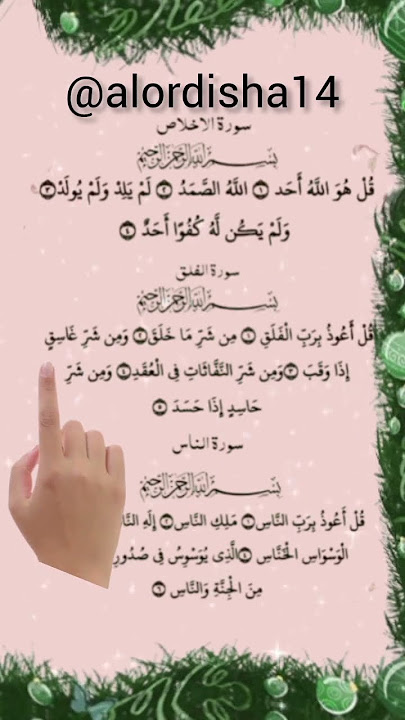 @alordisha14
سورة الاخلاص
بِسْمِ اللَّهِ الرَّحْمَنِ الرَّحِيمِ
قُلْ هُوَ اللَّهُ أَحَد ١ اللَّهُ الصَّمَدُ ٢ لَمْ يَلِدْ وَلَمْ يُولَدْ ٣
وَلَمْ يَكُن لَّهُ كُفُوًا أَحَدٌ ٤
سورة الفلق
بِسْمِ اللَّهِ الرَّحْمَنِ الرَّحِيمِ
قُل أَعُوذُ بِرَبِّ الْفَلَقِ ١ مِن شَرِّ مَا خَلَقَ ٢ وَمِن شَرِّ غَاسِقٍ
إِذَا وَقَبَ ٣ وَمِن شَرِّ النَّفَّاثَاتِ فِى الْعُقَدِ ٤ وَمِن شَرِّ
حَاسِدٍ إِذَا حَسَدَ ٥
سورة الناس
بِسْمِ اللَّهِ الرَّحْمَنِ الرَّحِيمِ
قُلْ أَعُوذُ بِرَبِّ النَّاسِ ١ مَلِكِ النَّاسِ ٢ إِلَهِ
الْوَسْوَاسِ الْخَنَّاسِ ٤ الَّذِى يُوَسْوِسُ فِى صُدُورِ
مِنَ الْجِنَّةِ وَالنَّاسِ ٦